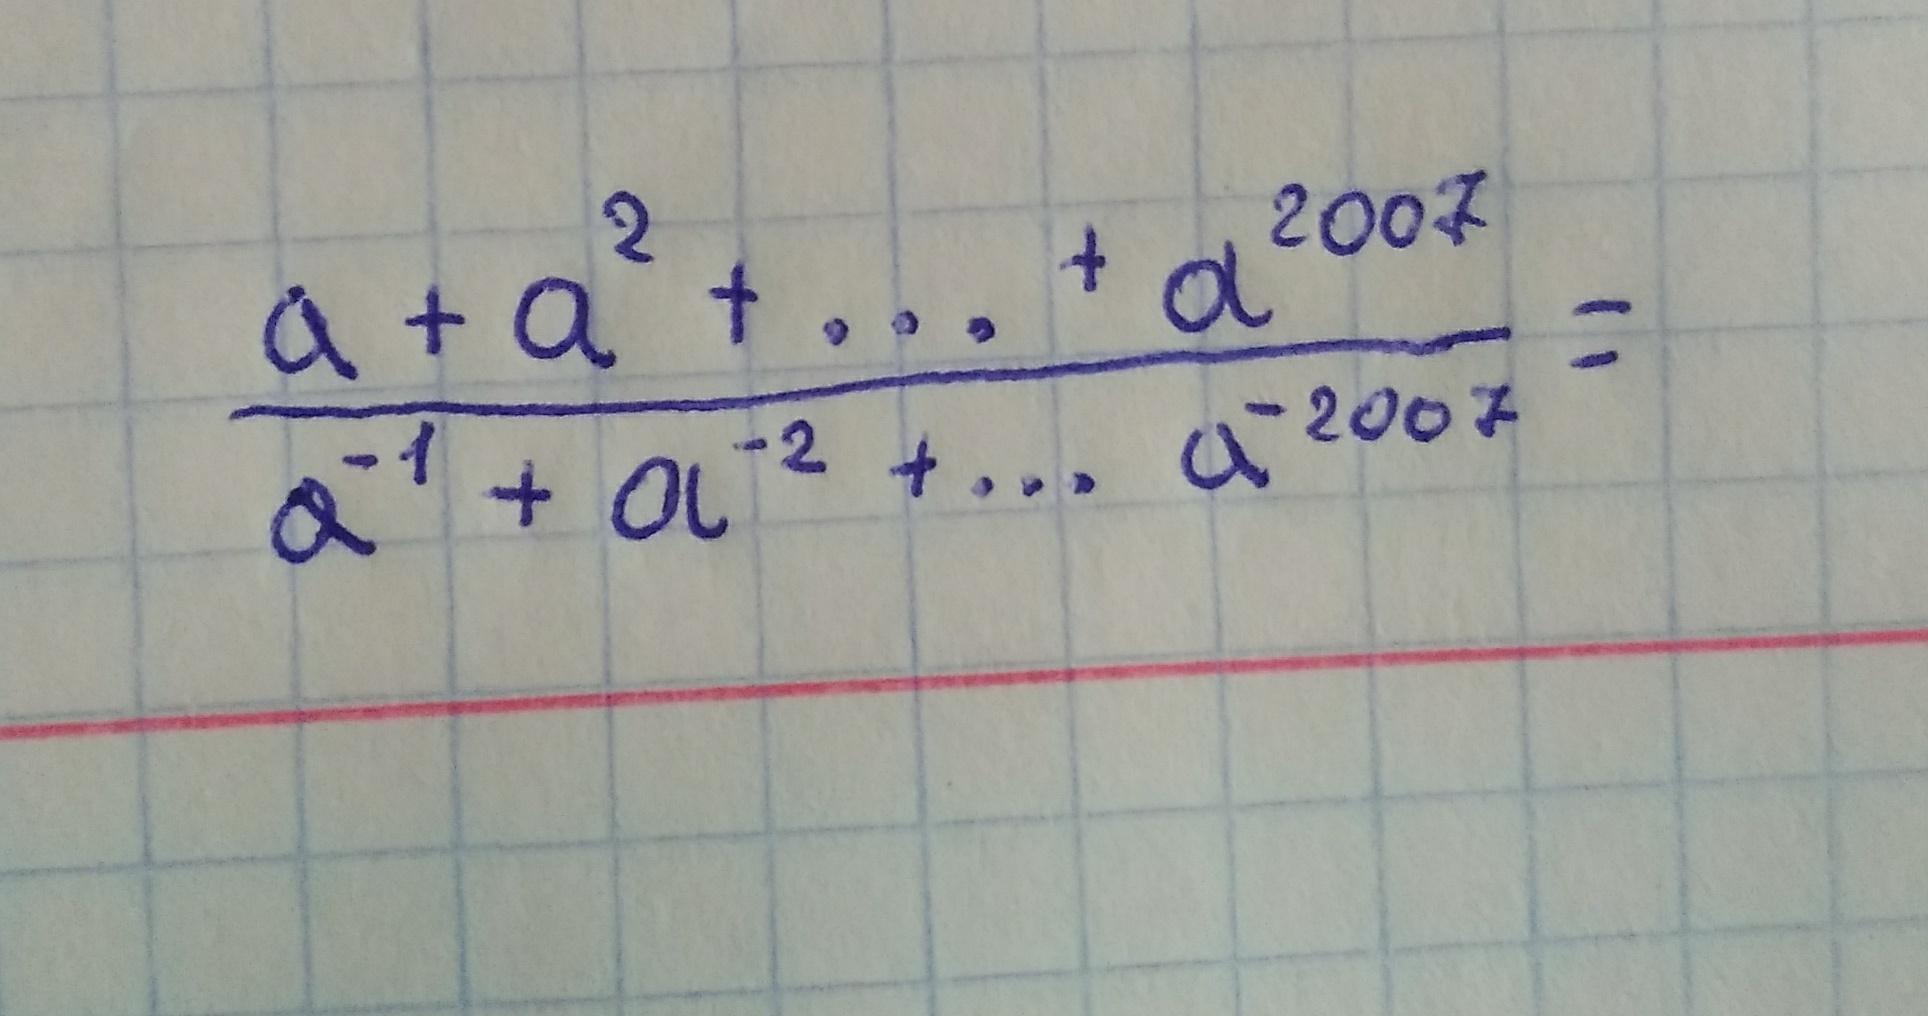 a + a² + ... + a²⁰⁰⁷ =
a⁻¹ + a⁻² + ... a⁻²⁰⁰⁷